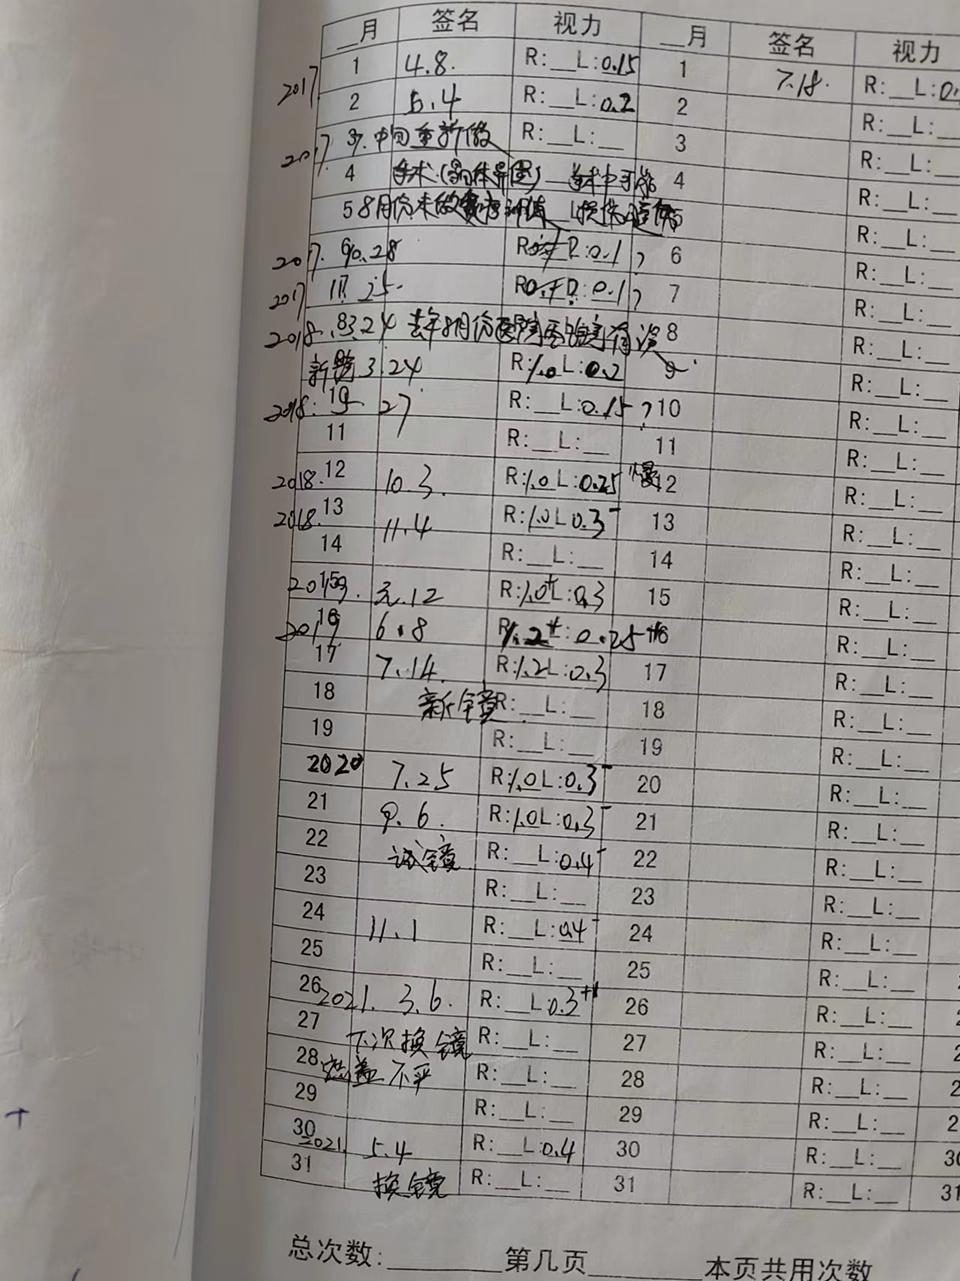 __月 签名 视力 __月 签名 视力
2017 1 4.8. R:__L:0.15 1 7.18. R:__L:0.
2 5.4 R:__L:0.2 2 R:__L:__
2017. 3 7. 中间重新做 R:__L:__ 3 R:__L:__
4 手术(晶体异 4 R:__L:__
5 8月份未做 R:__L:__
2017. 10.28 R: L:0.1 6 R:__L:__
2017 11. 25. R: L:0.1 7 R:__L:__
2018. 8 3.24 去年8月份医院 8 R:__L:__
新镜 3.24 R:1.0 L:0.2 9 R:__L:__
2018. 10 5. 27 R:__L:0.15 10 R:__L:__
11 R:__L:__ 11 R:__L:__
2018. 12 10.3. R:1.0 L:0.25 慢 12 R:__L:__
2018. 13 11.4 R:1.0 L:0.3- 13 R:__L:__
14 R:__L:__ 14 R:__L:__
2019. 15 元.12 R:1.0+ L:0.3 15 R:__L:__
2019 16 6.8 R:1.2+ L:0.25++ 16 R:__L:__
17 7.14. R:1.2 L:0.3 17 R:__L:__
18 新镜 R:__L:__ 18 R:__L:__
19 R:__L:__ 19 R:__L:__
2020 7.25 R:1.0 L:0.3- 20 R:__L:__
21 9.6. R:1.0 L:0.3- 21 R:__L:__
22 试镜 R:__L:0.4- 22 R:__L:__
23 R:__L:__ 23 R:__L:__
24 11.1 R:__L:0.4- 24 R:__L:__
25 R:__L:__ 25 R:__L:__
26 2021. 3.6. R:__L:0.3++ 26 R:__L:__
27 下次换镜 R:__L:__ 27 R:__L:__
28 不平 R:__L:__ 28 R:__L:__
29 R:__L:__ 29 R:__L:__
30 2021. 5.4 R:__L:0.4 30 R:__L:__
31 换镜 R:__L:__ 31 R:__L:__
总次数:________第几页________本页共用次数